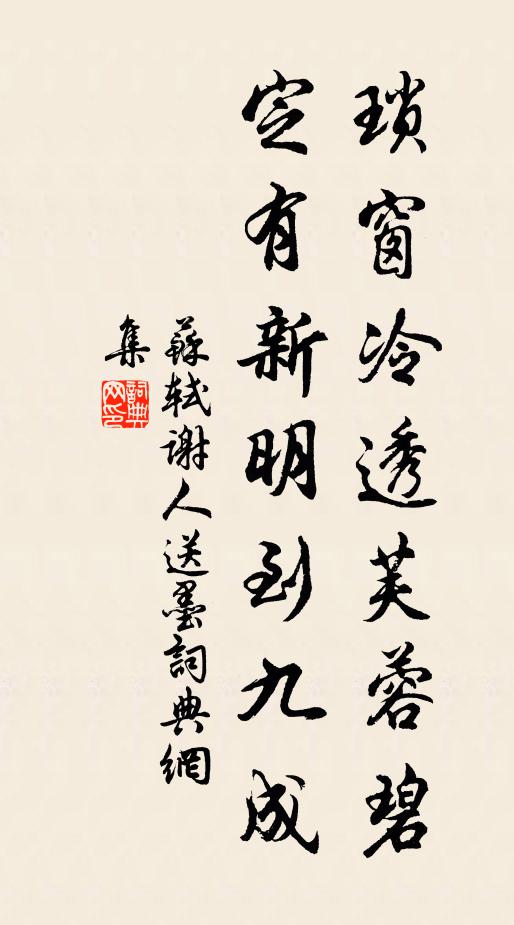 瑣窗冷透芙蓉碧
定有新明到九成
蘇軾謝人送墨詞典網
集
詞典
网印